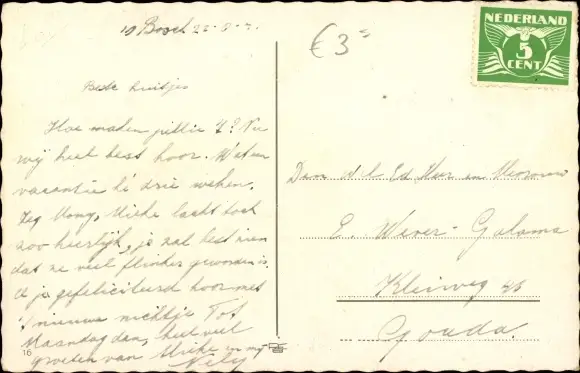 Bosch 25-8-
€ 3
NEDERLAND
5
CENT
Beste luitjes
Hoe maken jullie 't? Nu
wij heel best hoor. We
vacantie is drie weken.
Zeg Mieke lacht toch
zoo heerlijk, je zal best zien
dat ze veel flinker geworden is.
je gefeliciteerd hoor met
't nieuwe nichtje Tot
Maandag dan, heel veel
groeten van Mieke en mij
Nelly
Den Heer en Mevrouw
E. Wever-Galama
Kleiweg 45
Gouda.
16